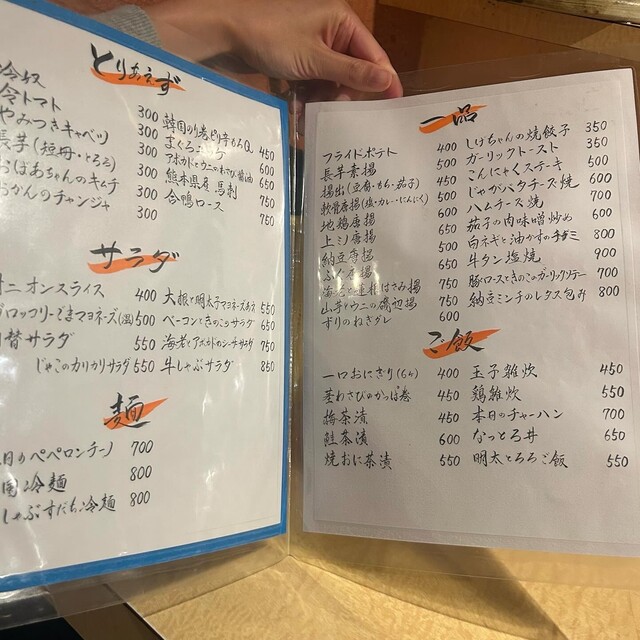 とりあえず
冷奴 300
冷トマト 300
やみつきキャベツ 300
長芋(短冊・とろろ) 300
おばあちゃんのキムチ 300
おかんのチャンジャ 300
450
まぐろ 500
アボカドとウニのわさび醤油 650
熊本県産 馬刺 750
合鴨ロース 750
サラダ
オニオンスライス 400
ブロッコリーごまマヨネーズ(温) 500
サラダ 550
じゃこのカリカリサラダ 550
大根と明太子マヨネーズあえ 550
ベーコンときのこサラダ 650
海老とアボカドのシーザサラダ 750
牛しゃぶサラダ 850
麺
日のペペロンチーノ 700
冷麺 800
しゃぶすだち冷麺 800
一品
フライドポテト 400
長芋素揚 500
揚出(豆腐・もち・茄子) 450
軟骨唐揚(塩・カレー・にんにく) 500
地鶏唐揚 600
上ミノ唐揚 650
納豆唐揚 500
唐揚 650
はさみ揚 750
山芋とウニの磯辺揚 750
ずりのねぎダレ 600
しげちゃんの焼餃子 350
ガーリックトースト 350
こんにゃくステーキ 500
じゃがバタチーズ焼 600
ハムチーズ焼 700
茄子の肉味噌炒め 600
白ネギと油かすの 800
牛タン塩焼 900
豚ロースときのこのガーリックソテー 700
納豆ミンチのレタス包み 800
ご飯
一口おにぎり 400
茎わさびのかっぱ巻 450
梅茶漬 450
鮭茶漬 600
焼おに茶漬 550
玉子雑炊 450
鶏雑炊 550
本日のチャーハン 700
なっとろ丼 650
明太とろろご飯 550